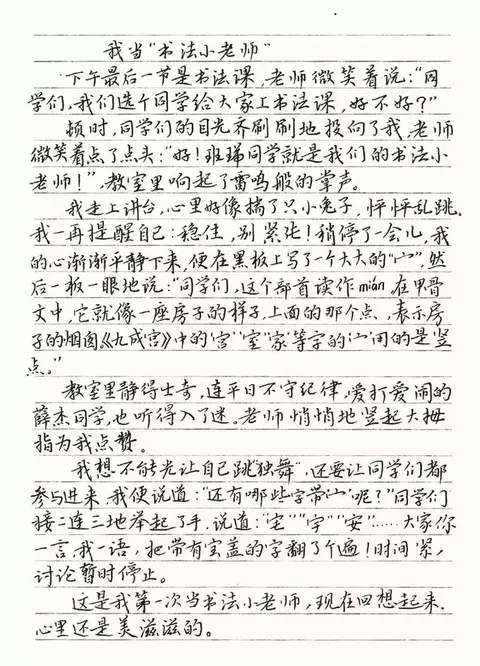 我当“书法小老师”
下午最后一节是书法课,老师微笑着说:“同
学们,我们选个同学给大家上书法课,好不好?”
顿时,同学们的目光齐刷刷地投向了我,老师
微笑着点了点头:“好!班瑞同学就是我们的书法小
老师!”,教室里响起了雷鸣般的掌声。
我走上讲台,心里好像揣了只小兔子,怦怦乱跳。
我一再提醒自己:稳住,别紧张!稍停了一会儿,我
的心渐渐平静下来,便在黑板上写了一个大大的“宀”,然
后一板一眼地说:“同学们,这个部首读作mián,在甲骨
文中,它就像一座房子的样子,上面的那个点,表示房
子的烟囱《九成宫》中的“宫”“室”“家”等字的“宀”用的是竖
点。”
教室里静得出奇,连平日不守纪律,爱打爱闹的
薛杰同学,也听得入了迷。老师悄悄地竖起大拇
指为我点赞。
我想不能光让自己跳“独舞”,还要让同学们都
参与进来,我便说道:“还有哪些字带“宀”呢?”同学们
接二连三地举起了手,说道:“宝”“字”“安”……大家你
一言,我一语,把带有宝盖的字翻了个遍!时间紧,
讨论暂时停止。
这是我第一次当书法小老师,现在回想起来,
心里还是美滋滋的。